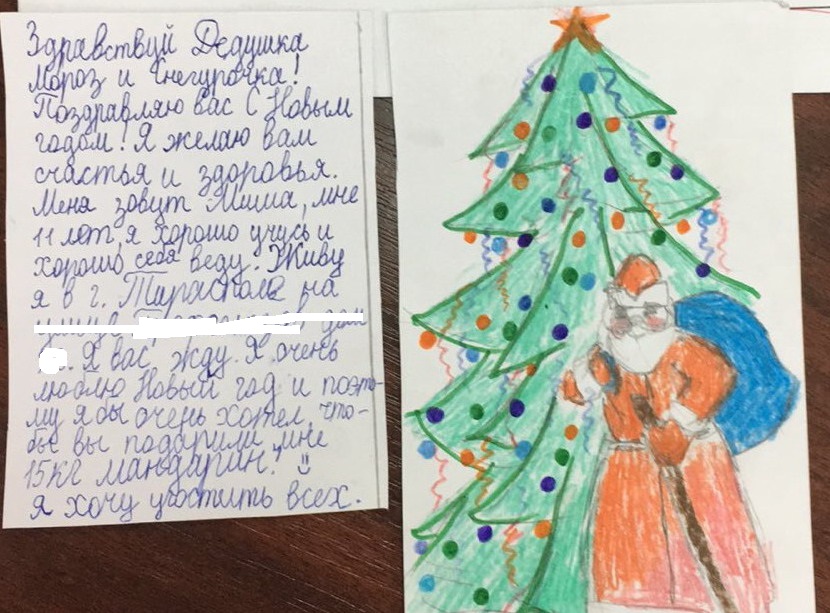 Здравствуй Дедушка
Мороз и Снегурочка!
Поздравляю вас С Новым
годом! Я желаю вам
счастья и здоровья.
Меня зовут Миша, мне
11 лет, я хорошо учусь и
хорошо себя веду. Живу
я в г. Тирасполе на
Я вас жду. Я очень
люблю Новый год и поэто-
му я бы очень хотел, что-
бы вы подарили мне
15кг мандарин!
Я хочу угостить всех.